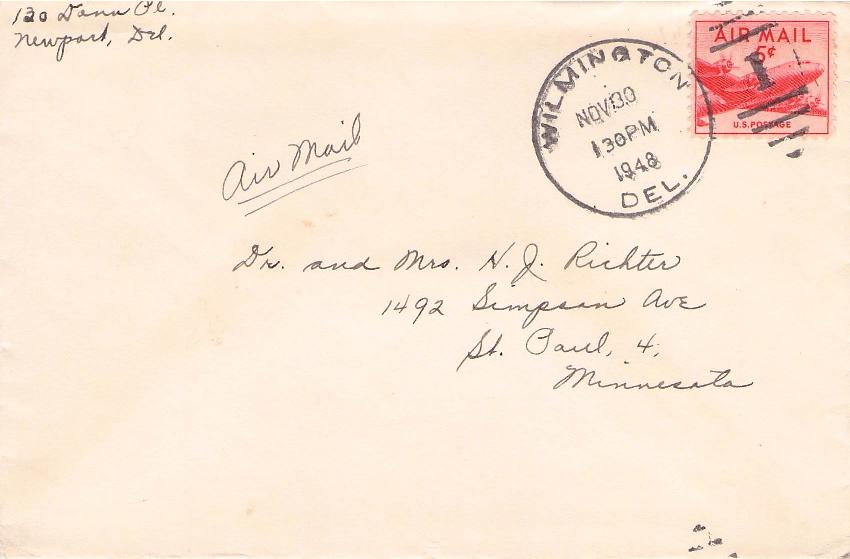 130 Dana Pl.
Newport, Del.
AIR MAIL
5¢
U.S. POSTAGE
WILMINGTON
NOV 30
1 30 PM
1948
DEL.
1
Air Mail
Dr. and Mrs. N. J. Richter
1492 Simpson Ave
St. Paul, 4,
Minnesota